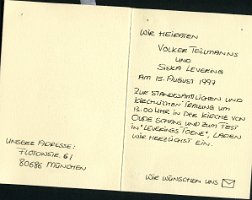 WIR HEIRATEN
VOLKER TELLMANNS
UND
SILKA LEVERING
AM 15. AUGUST 1997
ZUR STANDESAMTLICHEN UND
KIRCHLICHEN TRAUUNG UM
12.00 UHR IN DER KIRCHE VON
UND ZUM FEST
IN "LEVERINGS", LADEN
WIR HERZLICHST EIN.
UNSERE ADRESSE:
61
80686 MÜNCHEN
WIR WÜNSCHEN UNS